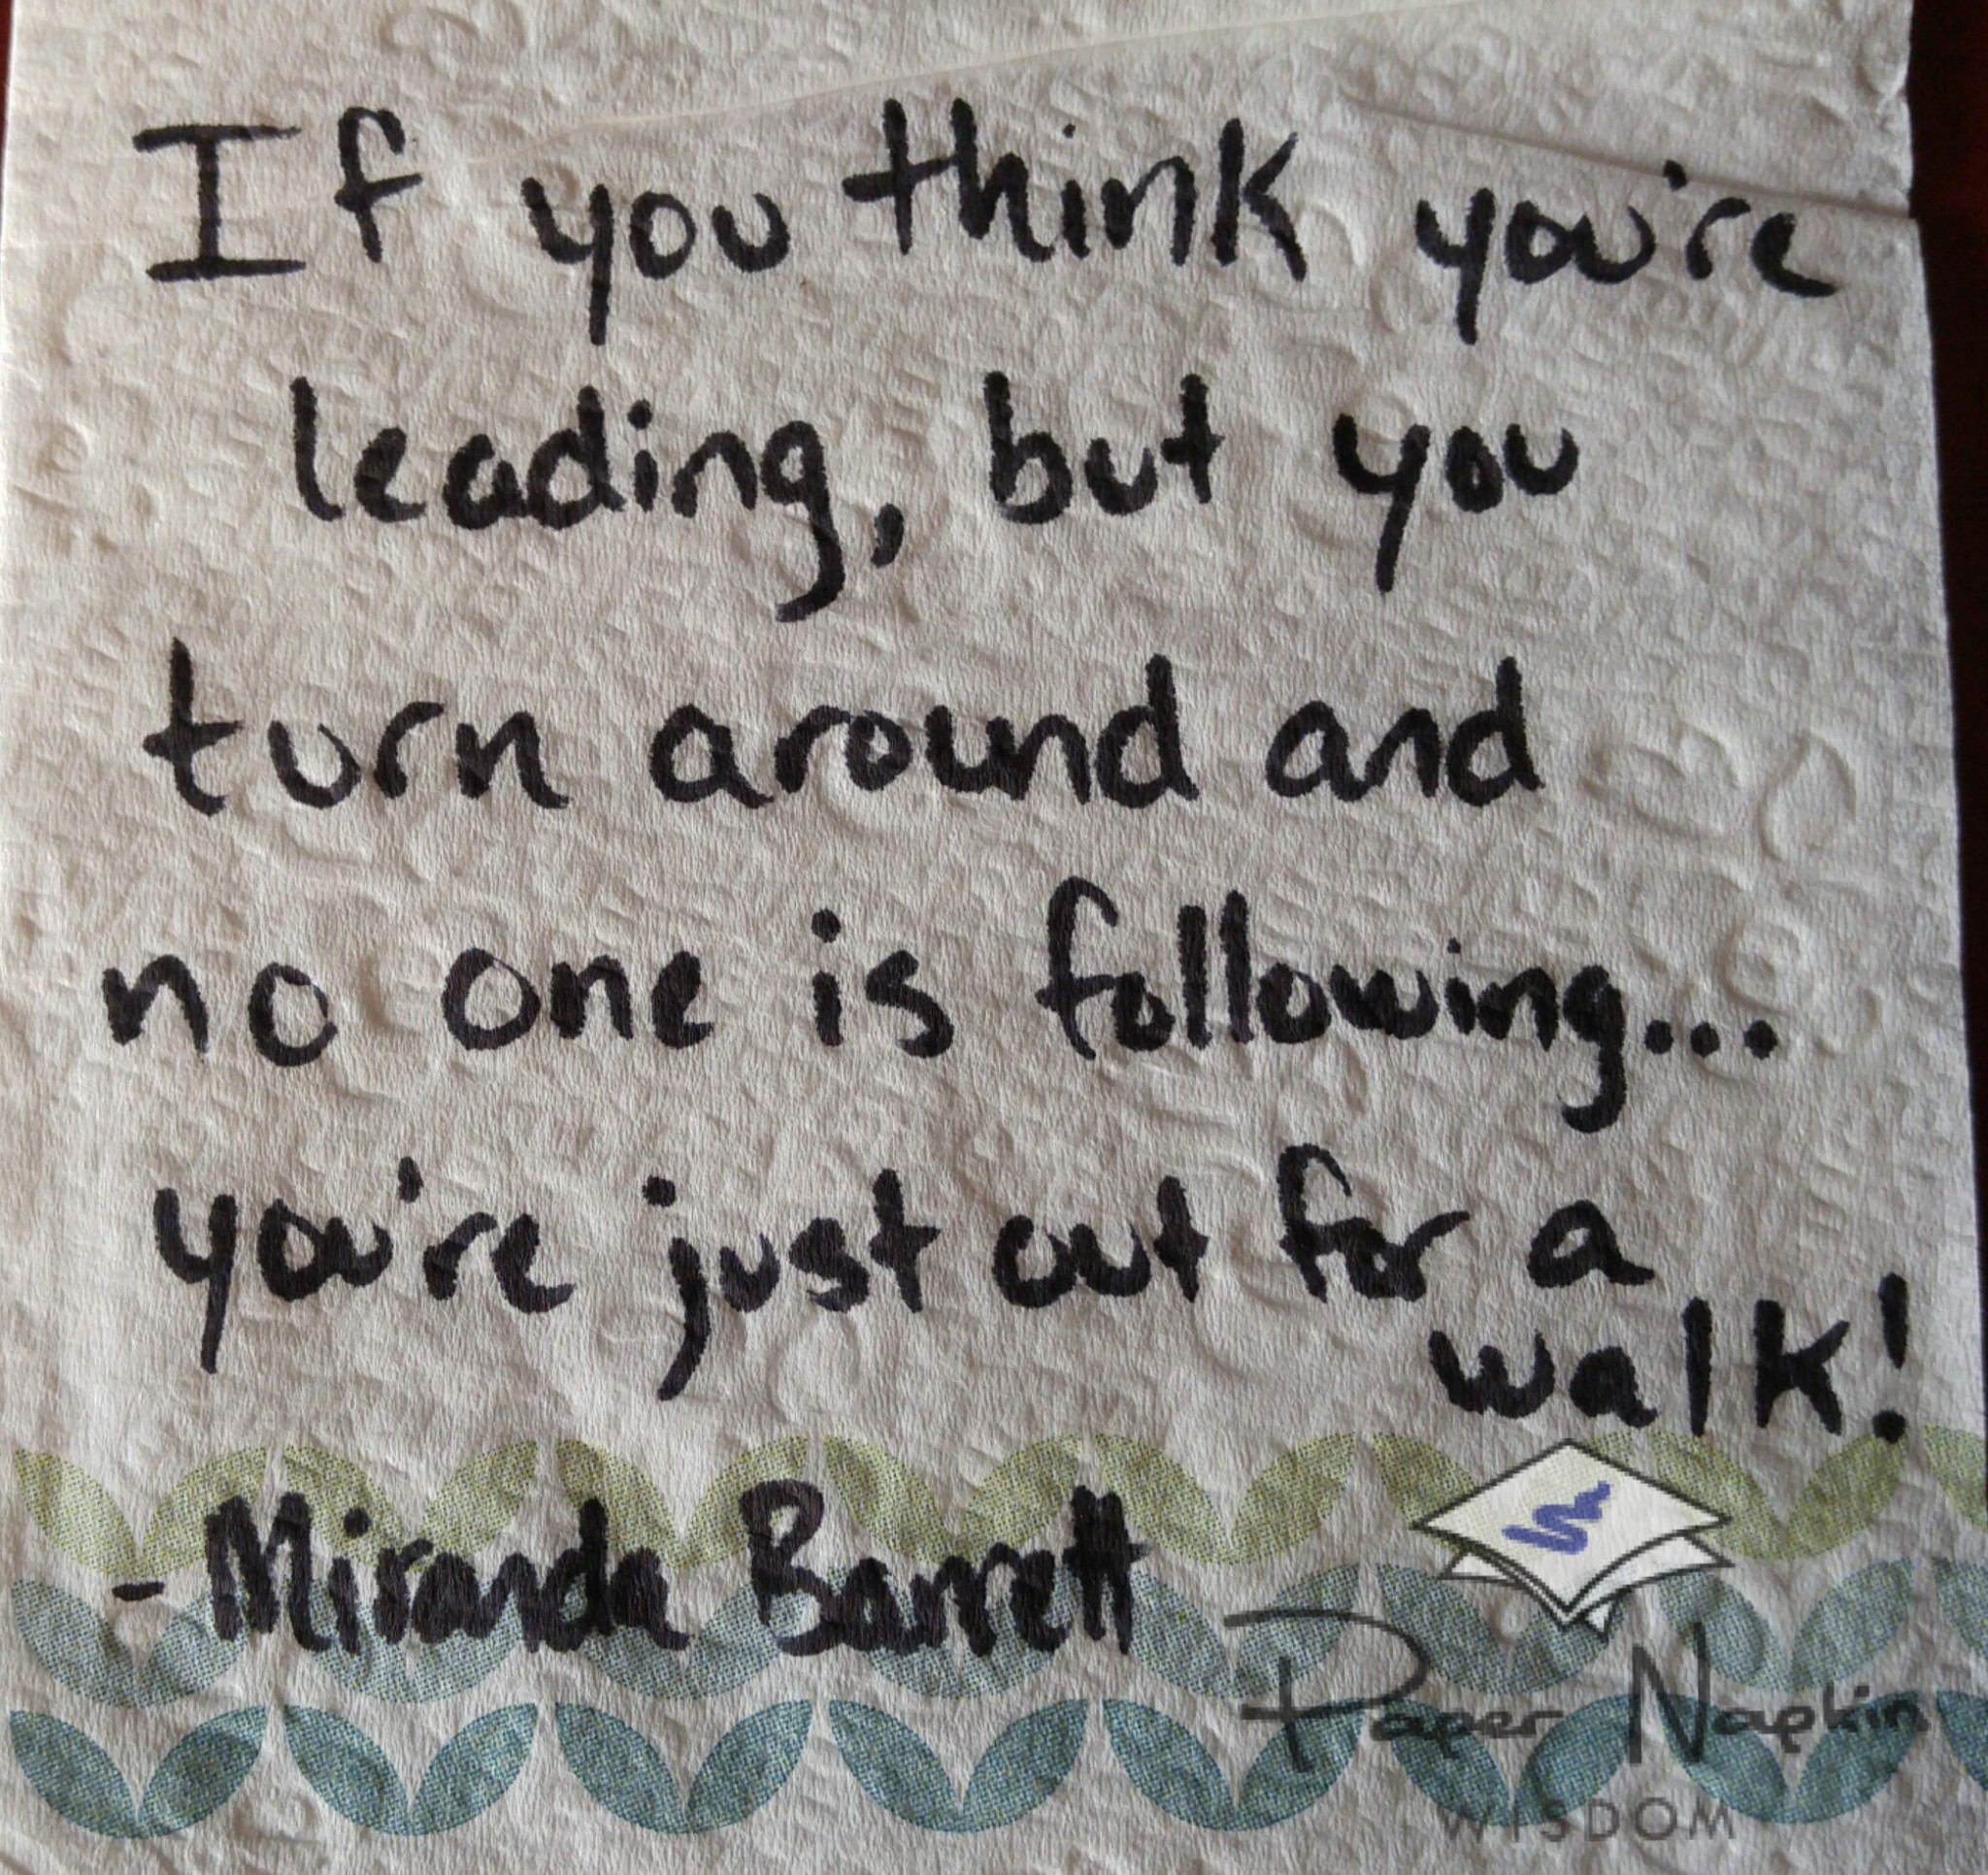 If you think you're
leading, but you
turn around and
no one is following...
you're just out for a
walk!
- Miranda Barrett
Paper Napkin
WISDOM